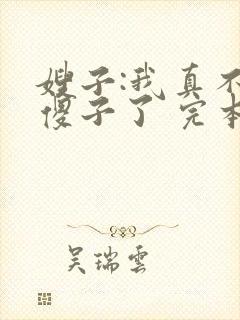 嫂子:我真不
傻子了 完本
吴瑞雲